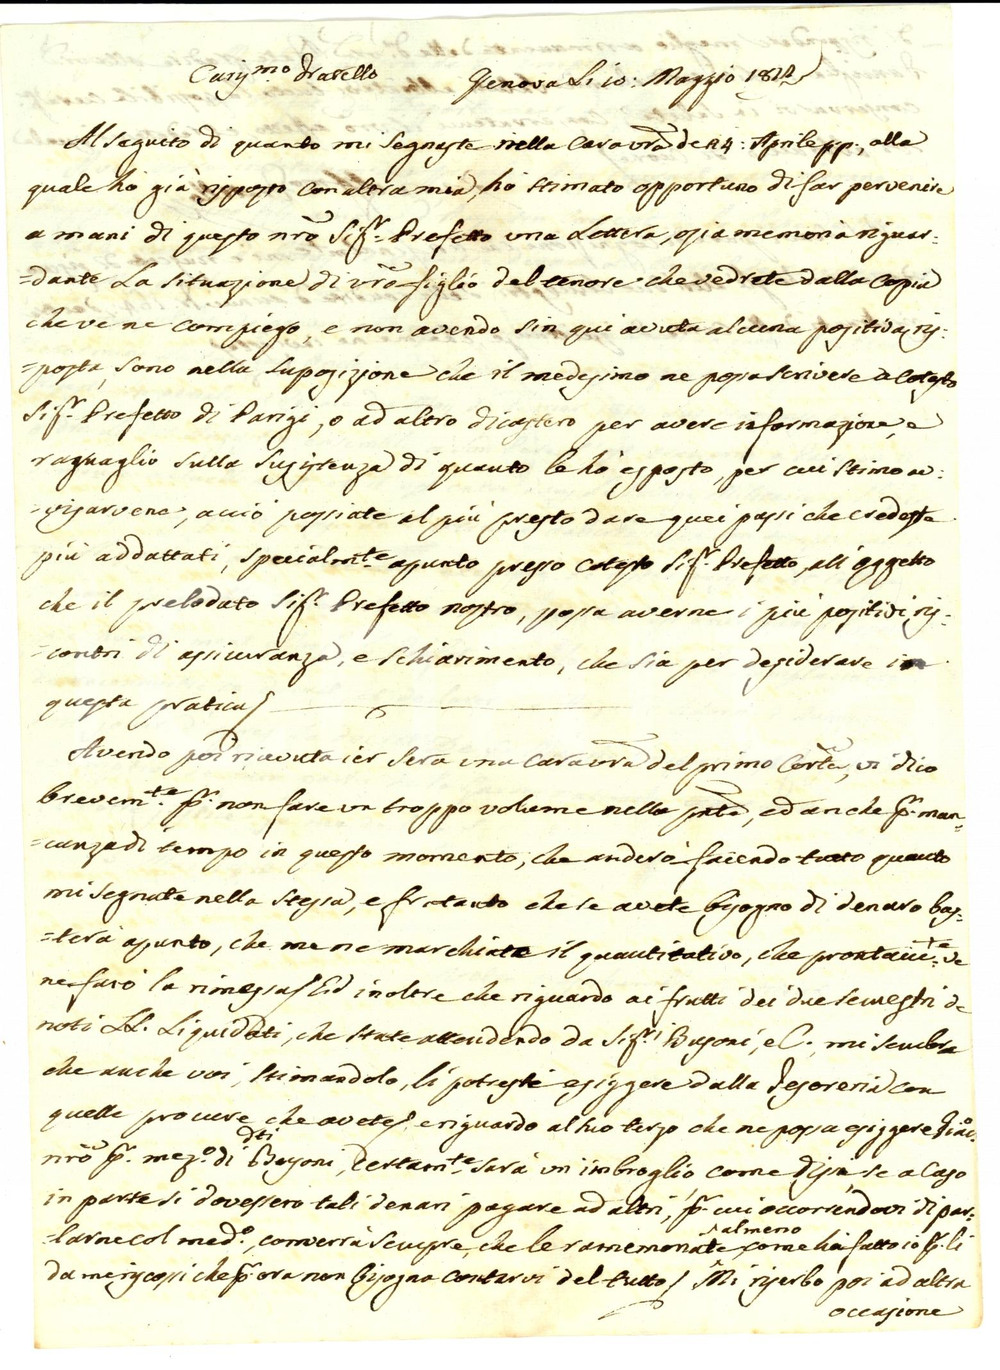 Cariss.mo Fratello Genova Li 10: Maggio 1812
Al seguito di quanto mi segnaste nella cara vra de 24: Aprile pp., alla
quale hò già risposto con altra mia, hò stimato opportuno di far pervenire
a mani di questo nrô Sig.r Prefetto una Lettera, osia memoria riguar-
=dante La situazione di vrô figlio del tenore che vedrete dalla copia
che ve ne compiego, e non avendo sin quì avuta alcuna positiva ris-
=posta, sono nella suposizione che il medesimo ne possa scrivere a cotesto
Sig.r Prefetto di Parigi, o ad altro dicastero per avere informazione, e
raguaglio sulla susistenza di quanto le hò esposto, per cui stimo av-
=visarvene, acciò possiate al più presto dare quei passi che credeste
più addattati, specialm.te apunto presso cotesto Sig.r Prefetto, all'oggetto
che il prelodato Sig.r Prefetto nostro, possa averne i più positivi ris-
=contri di assicuranza, e schiarimento, che sia per desiderare in
questa pratica
Avendo poi ricevuta ier sera una cara vra del primo Corr.te, vi dico
brevem.te p. non fare un troppo volume nella pnte, ed anche p. man-
=canza di tempo in questo momento, che anderò facendo tutto quanto
mi segnate nella stessa, e frattanto che se avete bisogno di denaro bas-
=terà apunto, che me ne marchiate il quantitativo, che prontam.te ve
ne farò la rimessa Ed inoltre che riguardo ai frutti dei due semestri de
noti LL. Liquidati, che state attendendo da Sig.ri Busoni, e C., mi sembra
che anche voi, stimandolo, li potreste esiggere dalla Tesoreria con
quelle procure che avete, e riguardo al suo terzo che ne possa esiggere Giac.o
nrô p. mez.o di dti Busoni, Certam.te sarà un imbroglio come dissi, se a caso
in parte si dovessero tali denari pagare ad altri, p. cui occorrendovi di par-
=larne col med.o, converrà sempre, che le ramemoriate almeno come hà fatto io p. li
da me riscossi che p. ora non bisogna contarvi del tutto / Mi riserbo poi ad altra
occasione